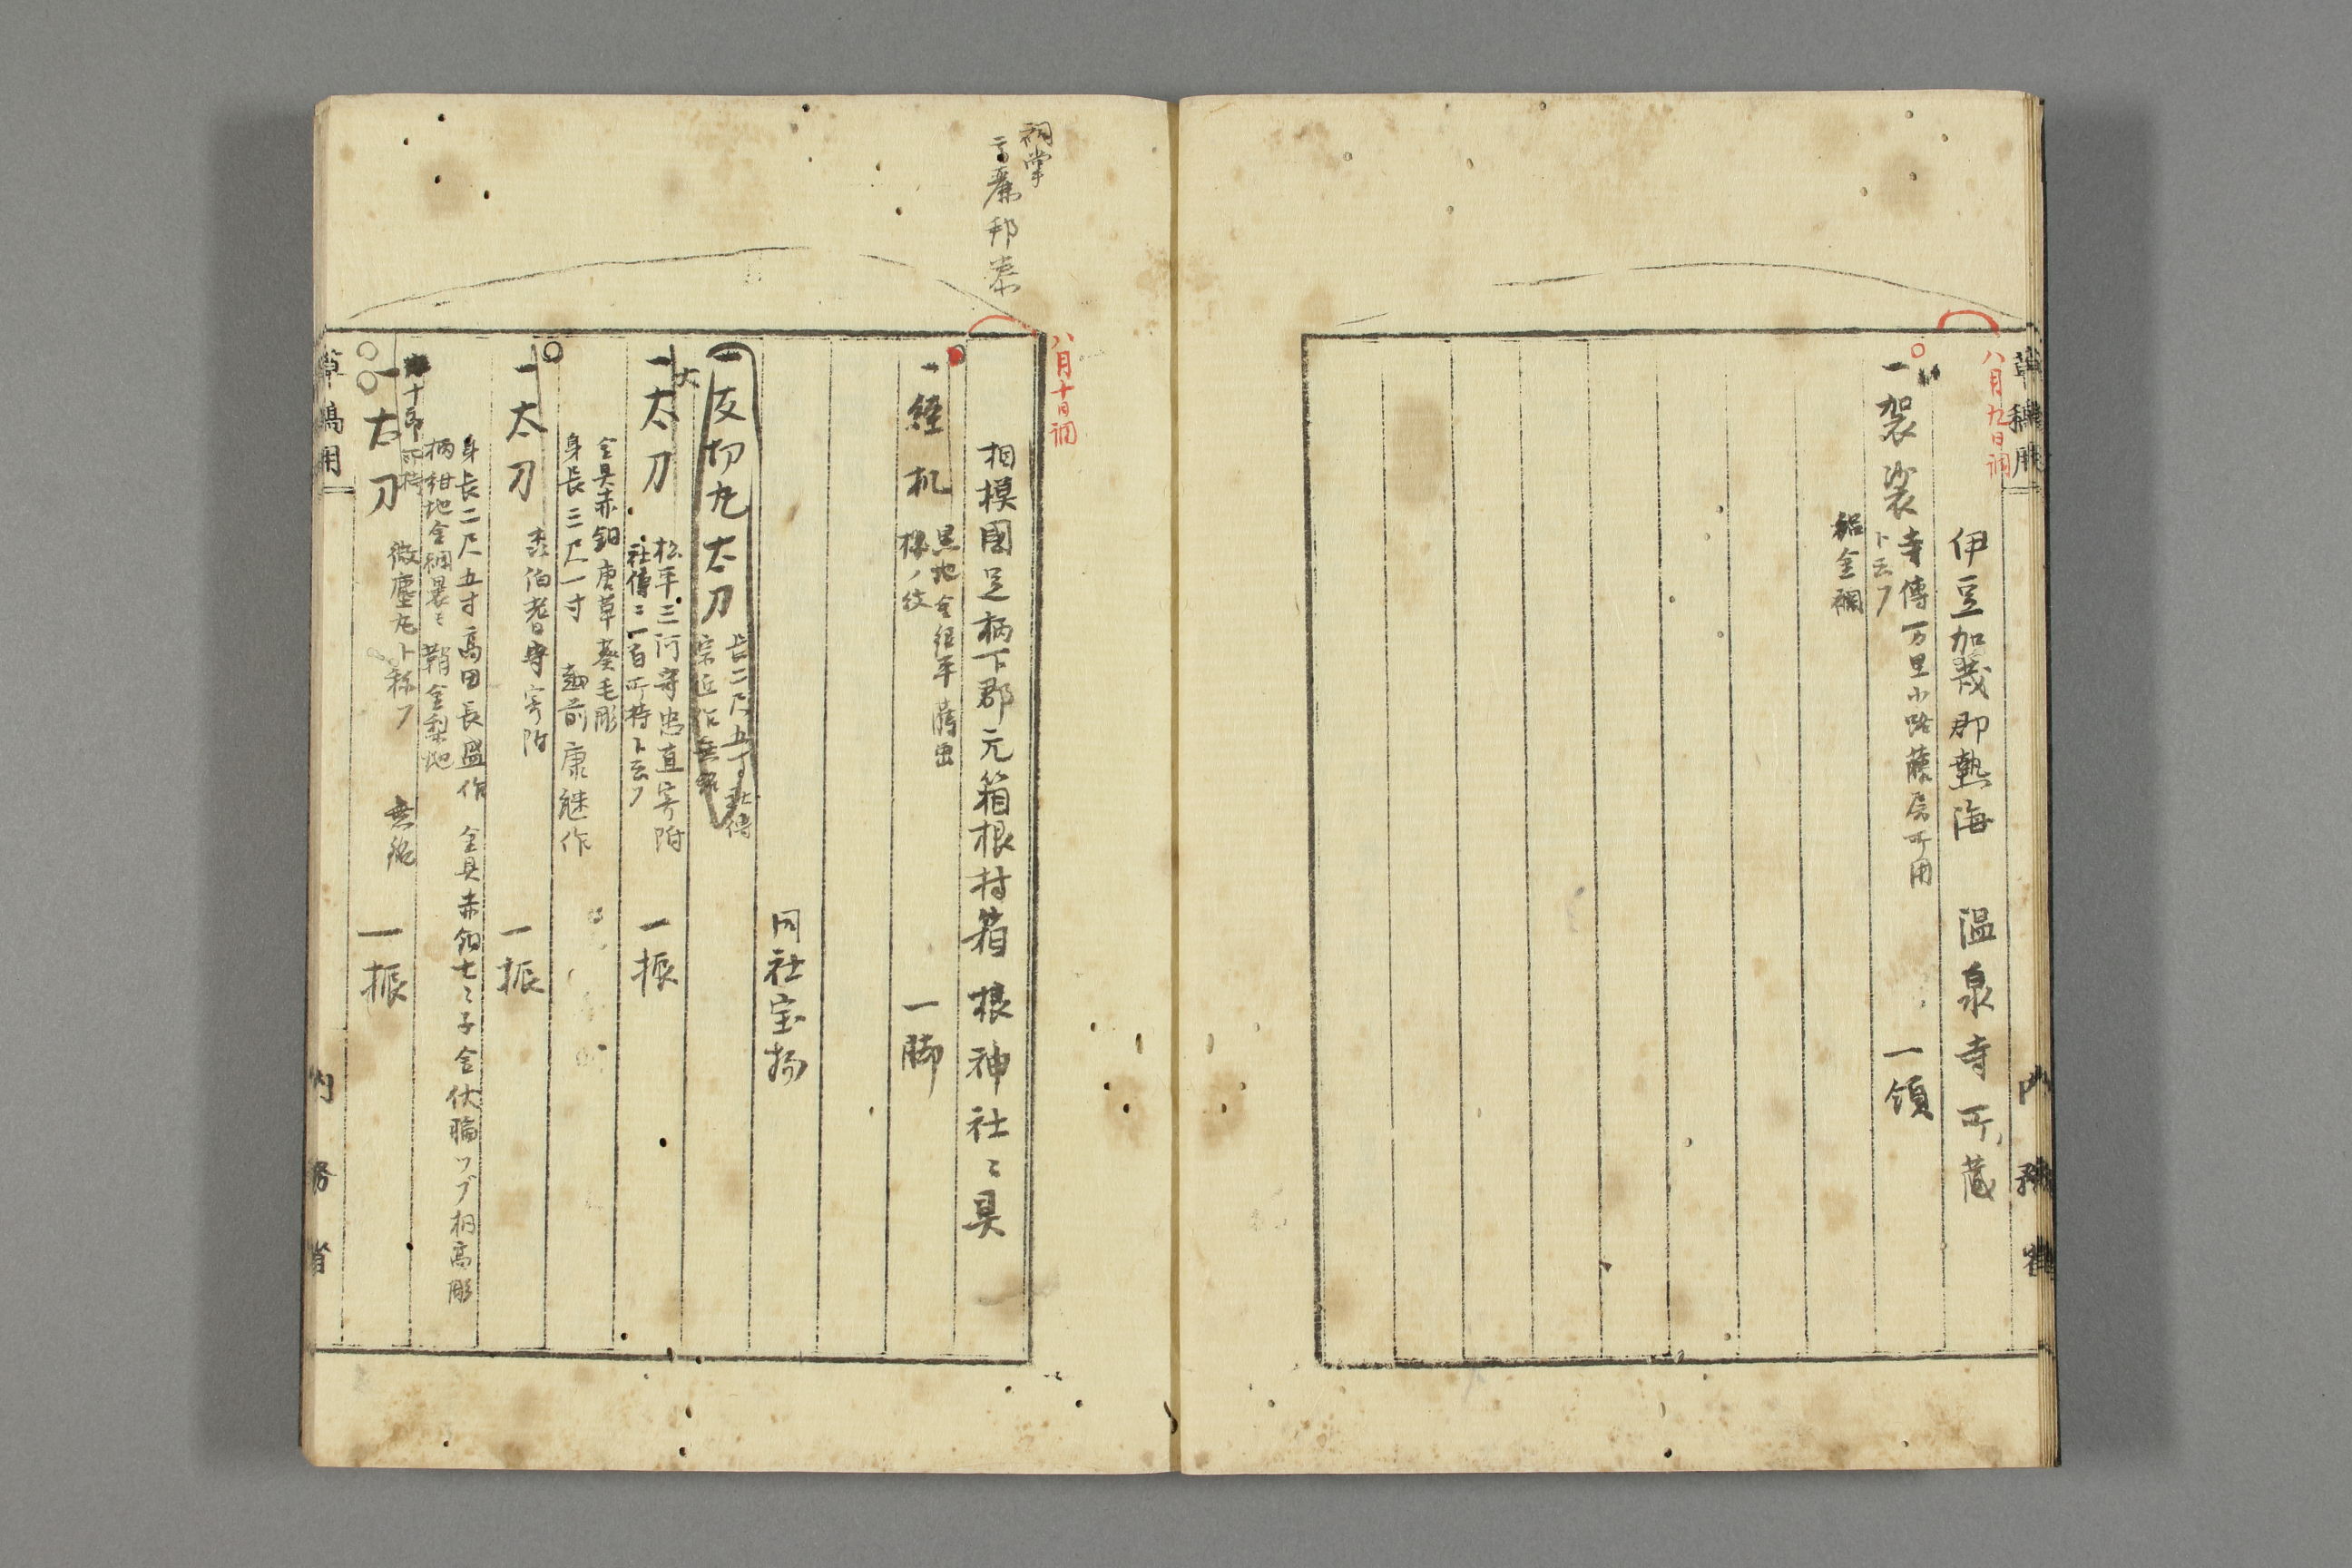 草稿用
内務省
八月九日調
伊豆加茂郡熱海 温泉寺所蔵
一袈裟 一領
寺傳万里小路藤房所用
ト云フ
紹金襴
八月十日調
祠掌
相摸國足柄下郡元箱根村箱根神社々具
一経机 一脚
黒地金経平蒔出
桜ノ紋
同社宝物
一友切丸太刀
長二尺五寸社傳
宗近作無銘
大
一太刀 一振
松平三河守忠直寄附
社傳ニ一百所持ト云フ
金具赤銅唐草葵毛彫
身長三尺一寸 越前康継作
一太刀 一振
森伯耆守寄附
身長二尺五寸高田長盛作 金具赤銅七々子金伏輪ツブ桐高彫
柄紺地金襴裹ミ鞘金梨地
十郎所持
一太刀 一振
微塵丸ト称フ 無銘
草稿用
内務省